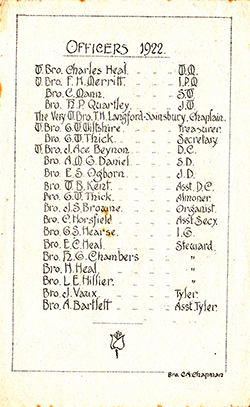 OFFICERS 1922.
W. Bro. Charles Heal. W.M.
W. Bro. F. H. Merritt. I.P.M
Bro. C. Mann. S.W
Bro. H. P. Quartley. J.W
The Very W. Bro. T.H. Langford-Sainsbury, Chaplain.
W. Bro. G. W. Wiltshire. Treasurer.
Bro. G. W. Thick. Secretary
W. Bro. J. Ace Beynon. D.C.
Bro. A. M. G. Daniel. S.D.
Bro. E. S. Ogborn. J.D.
Bro. W. B. Kent. Asst. D.C.
Bro. G. W. Thick. Almoner
Bro. J. S. Browne. Organist.
Bro. C. Horsfield Asst Secy.
Bro. G. S. Hearse. I.G.
Bro. E. C. Heal. Steward.
Bro. H. G. Chambers "
Bro. H. Heal. "
Bro. L. E. Hillier. "
Bro. J. Vaux. Tyler.
Bro. A. Bartlett. Asst Tyler.
Bro. C. A. Chapman